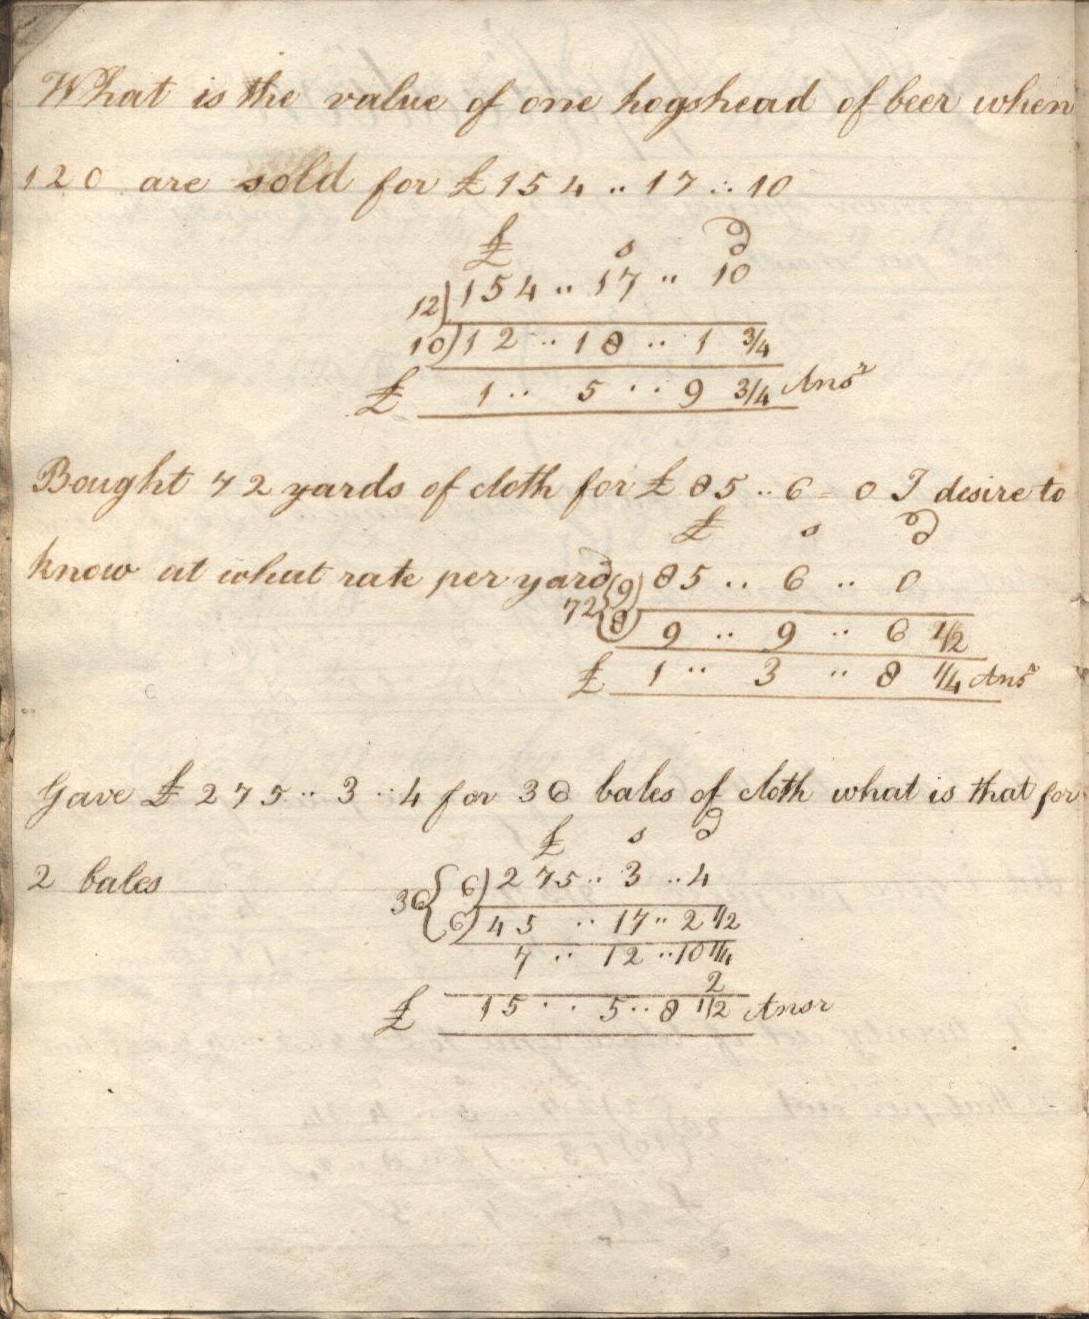 What is the value of one hogshead of beer when
120 are sold for £154 .. 17 .. 10
£ s d
12) 154 .. 17 .. 10
10) 12 .. 18 .. 1 3/4
£ 1 .. 5 .. 9 3/4 Ansr
Bought 72 yards of cloth for £ 85 .. 6 = 0 I desire to
£ s d
know at what rate per yard 9) 85 .. 6 .. 0
72 8) 9 .. 9 .. 6 1/2
£ 1 .. 3 .. 8 1/4 Ansr
Gave £ 275 .. 3 .. 4 for 36 bales of cloth what is that for
£ s d
2 bales 6) 275 .. 3 .. 4
36 6) 45 .. 17 .. 2 1/2
7 .. 12 .. 10 1/4
2
£ 15 .. 5 .. 8 1/2 Ansr